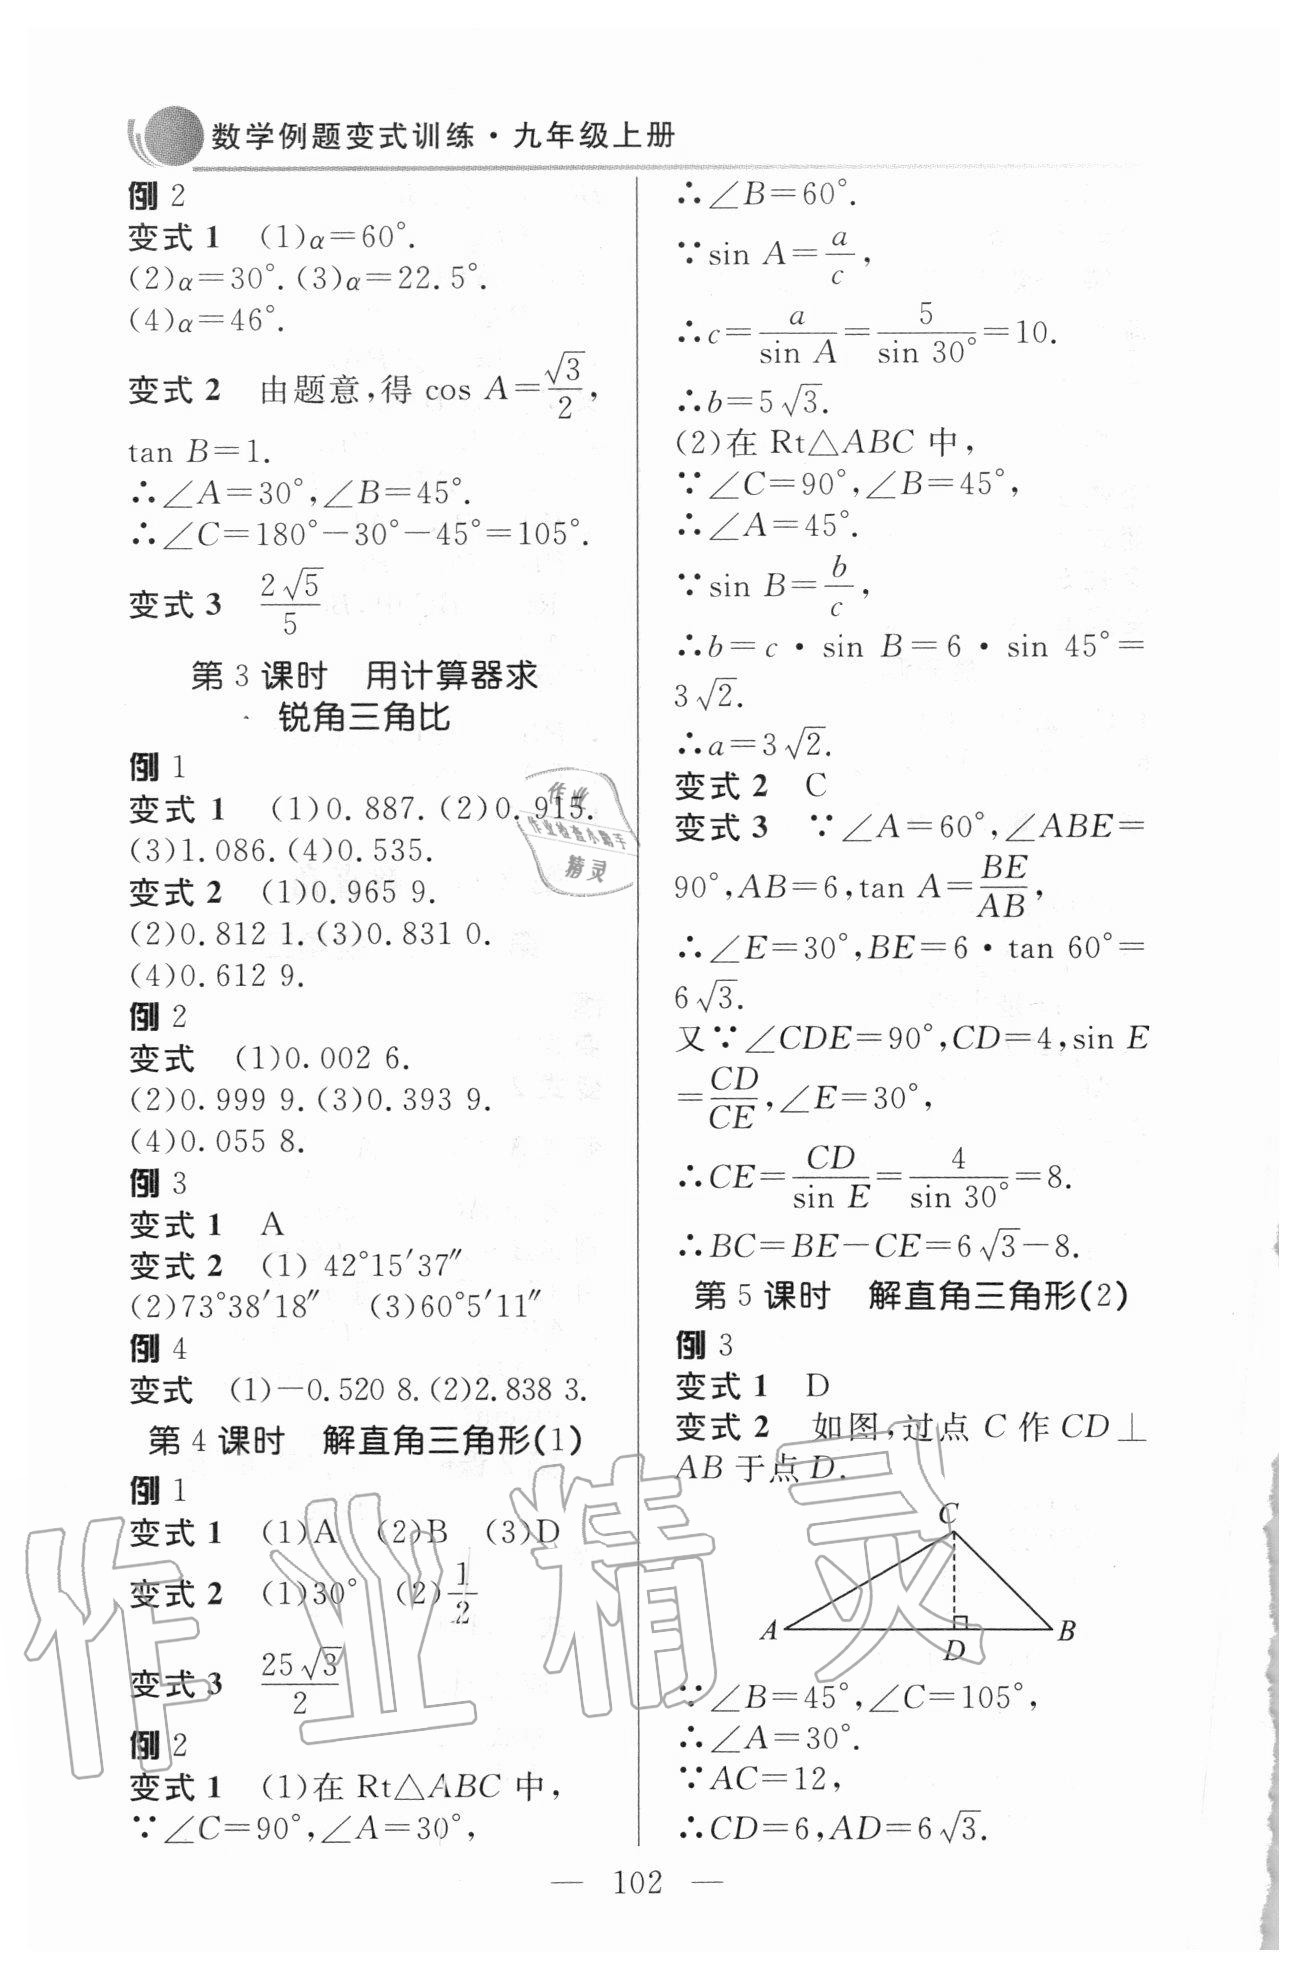 数学例题变式训练·九年级上册
例 2
变式 1 (1)α=60°.
(2)α=30°.(3)α=22.5°.
(4)α=46°.
变式 2 由题意,得 cos A=√3/2,
tan B=1.
∴∠A=30°,∠B=45°.
∴∠C=180°-30°-45°=105°.
变式 3 2√5/5
第 3 课时 用计算器求
锐角三角比
例 1
变式 1 (1)0.887.(2)0.915.
(3)1.086.(4)0.535.
变式 2 (1)0.965 9.
(2)0.812 1.(3)0.831 0.
(4)0.612 9.
例 2
变式 (1)0.002 6.
(2)0.999 9.(3)0.393 9.
(4)0.055 8.
例 3
变式 1 A
变式 2 (1) 42°15′37″
(2)73°38′18″ (3)60°5′11″
例 4
变式 (1)-0.520 8.(2)2.838 3.
第 4 课时 解直角三角形(1)
例 1
变式 1 (1)A (2)B (3)D
变式 2 (1)30° (2)1/2
变式 3 25√3/2
例 2
变式 1 (1)在 Rt△ABC 中,
∵∠C=90°,∠A=30°,
∴∠B=60°.
∵sin A=a/c,
∴c=a/sin A=5/sin 30°=10.
∴b=5√3.
(2)在 Rt△ABC 中,
∵∠C=90°,∠B=45°,
∴∠A=45°.
∵sin B=b/c,
∴b=c·sin B=6·sin 45°=
3√2.
∴a=3√2.
变式 2 C
变式 3 ∵∠A=60°,∠ABE=
90°,AB=6,tan A=BE/AB,
∴∠E=30°,BE=6·tan 60°=
6√3.
又∵∠CDE=90°,CD=4,sin E
=CD/CE,∠E=30°,
∴CE=CD/sin E=4/sin 30°=8.
∴BC=BE-CE=6√3-8.
第 5 课时 解直角三角形(2)
例 3
变式 1 D
变式 2 如图,过点 C 作 CD⊥
AB 于点 D.
C
A
D
B
∵∠B=45°,∠C=105°,
∴∠A=30°.
∵AC=12,
∴CD=6,AD=6√3.
— 102 —
作业
作业检查小助手
精灵
作业精灵